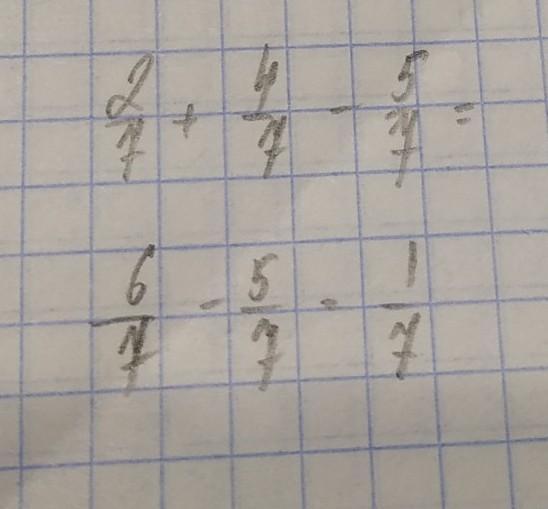 2/7 + 4/7 - 5/7 =
6/7 - 5/7 = 1/7